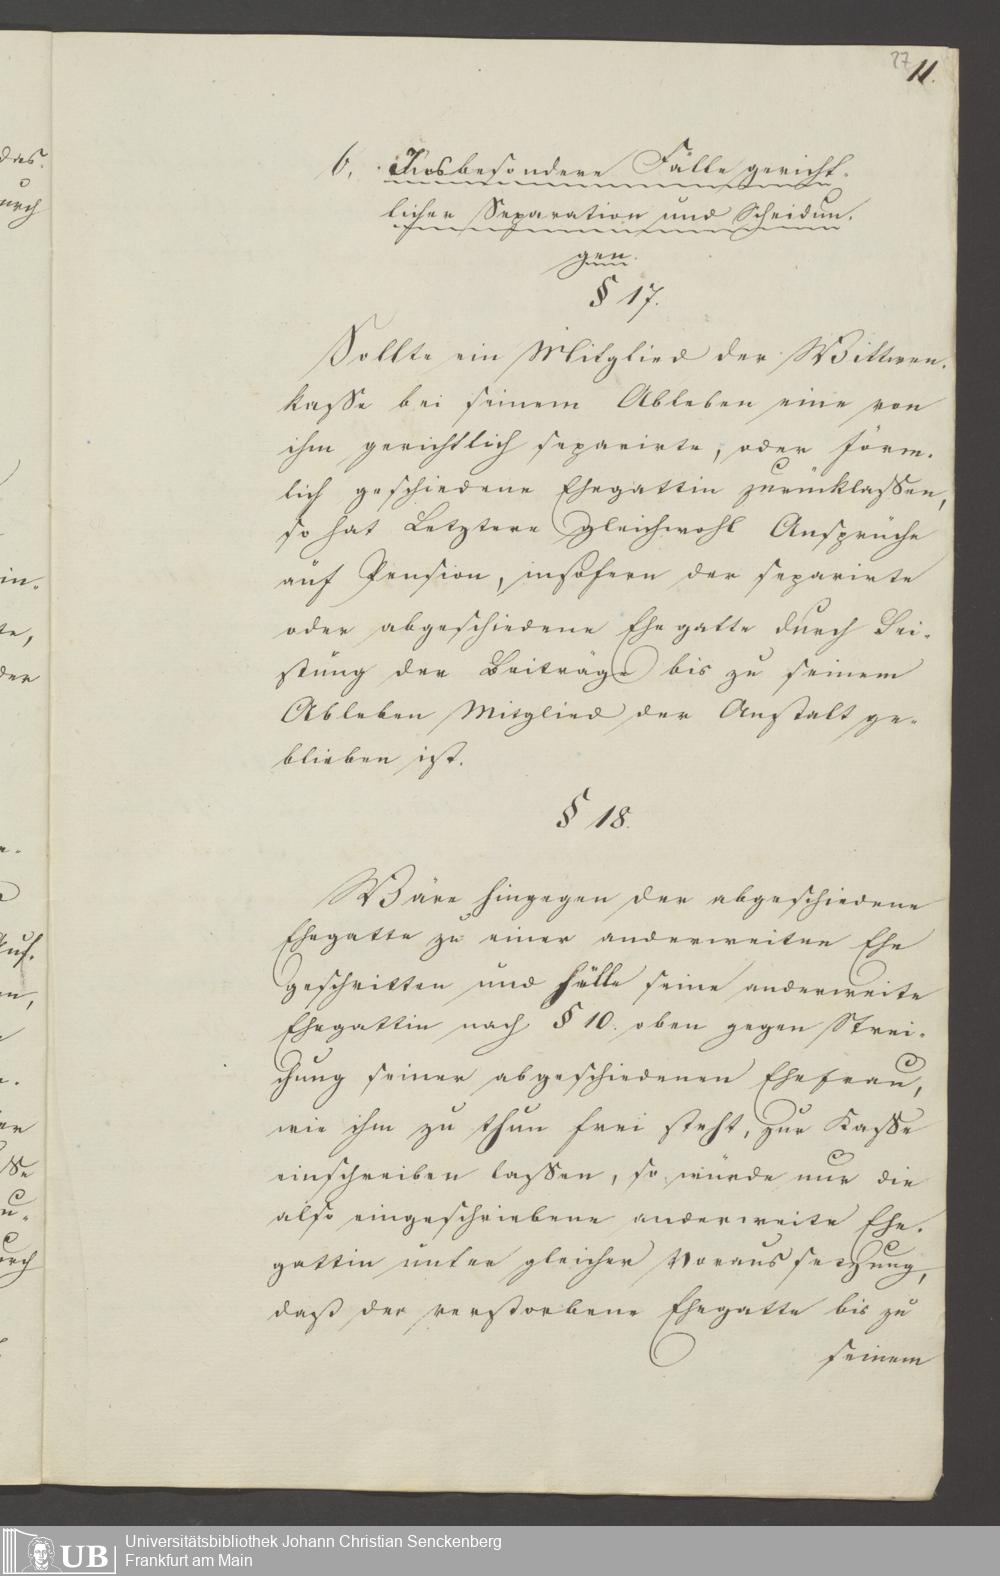 27
11.
b. Insbesondere Fälle gericht-
licher Separation und Scheidun-
gen.
§ 17.
Sollte ein Mitglied der Wittwen-
kasse bei seinem Ableben eine von
ihm gerichtlich separirte, oder förm-
lich geschiedene Ehegattin zurücklassen,
so hat Letztere gleichwohl Ansprüche
auf Pension, insofern der separirte
oder abgeschiedene Ehegatte durch Lei-
stung der Beiträge bis zu seinem
Ableben Mitglied der Anstalt ge-
blieben ist.
§ 18.
Wäre hingegen der abgeschiedene
Ehegatte zu einer anderweiten Ehe
geschritten und hätte seine anderweite
Ehegattin nach § 10. oben gegen Strei-
chung seiner abgeschiedenen Ehefrau,
wie ihm zu thun frei steht, zur Kasse
einschreiben lassen, so würde nur die
also eingeschriebene anderweite Ehe-
gattin unter gleicher Voraussetzung,
daß der verstorbene Ehegatte bis zu
seinem
das
urch
in-
te,
der
Auf-
en,
er
sse
u-
urch
UB
Universitätsbibliothek Johann Christian Senckenberg
Frankfurt am Main